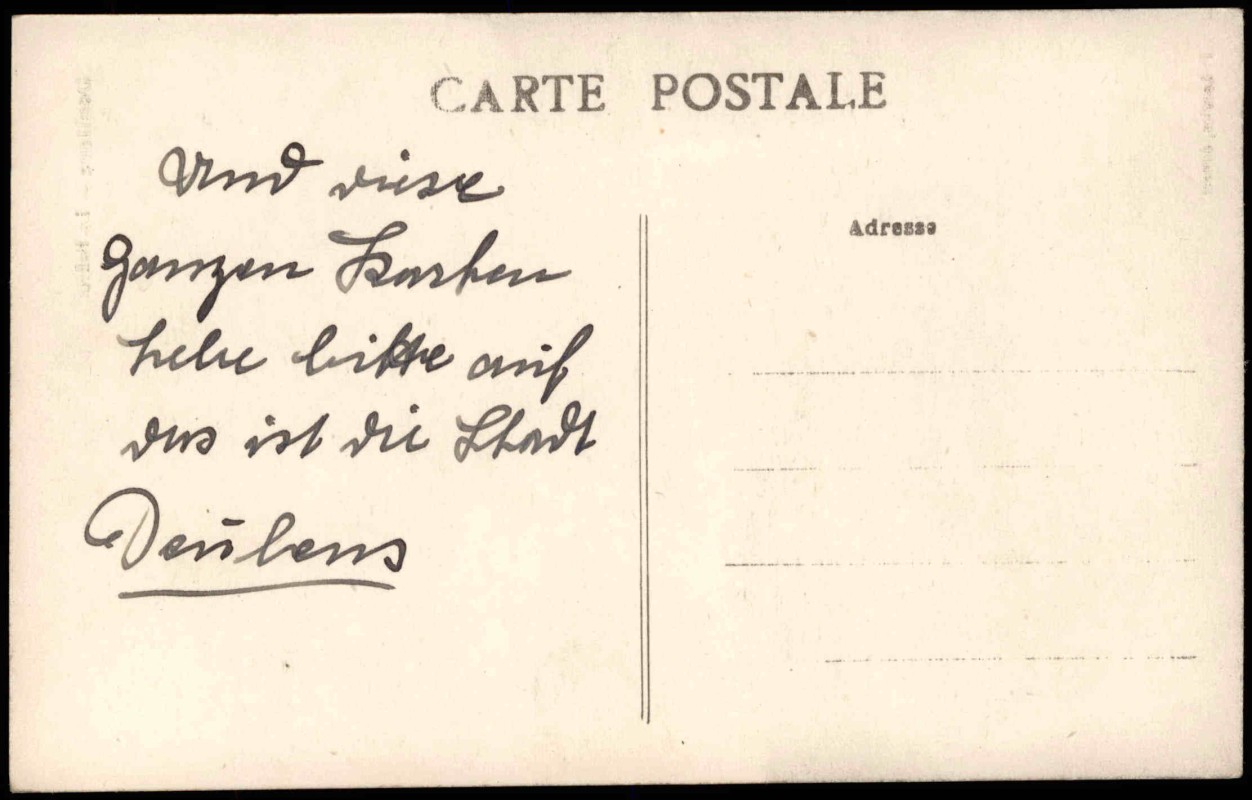 CARTE POSTALE
Und diese
ganzen Karten
hebe bitte auf
das ist die Stadt
Adresse